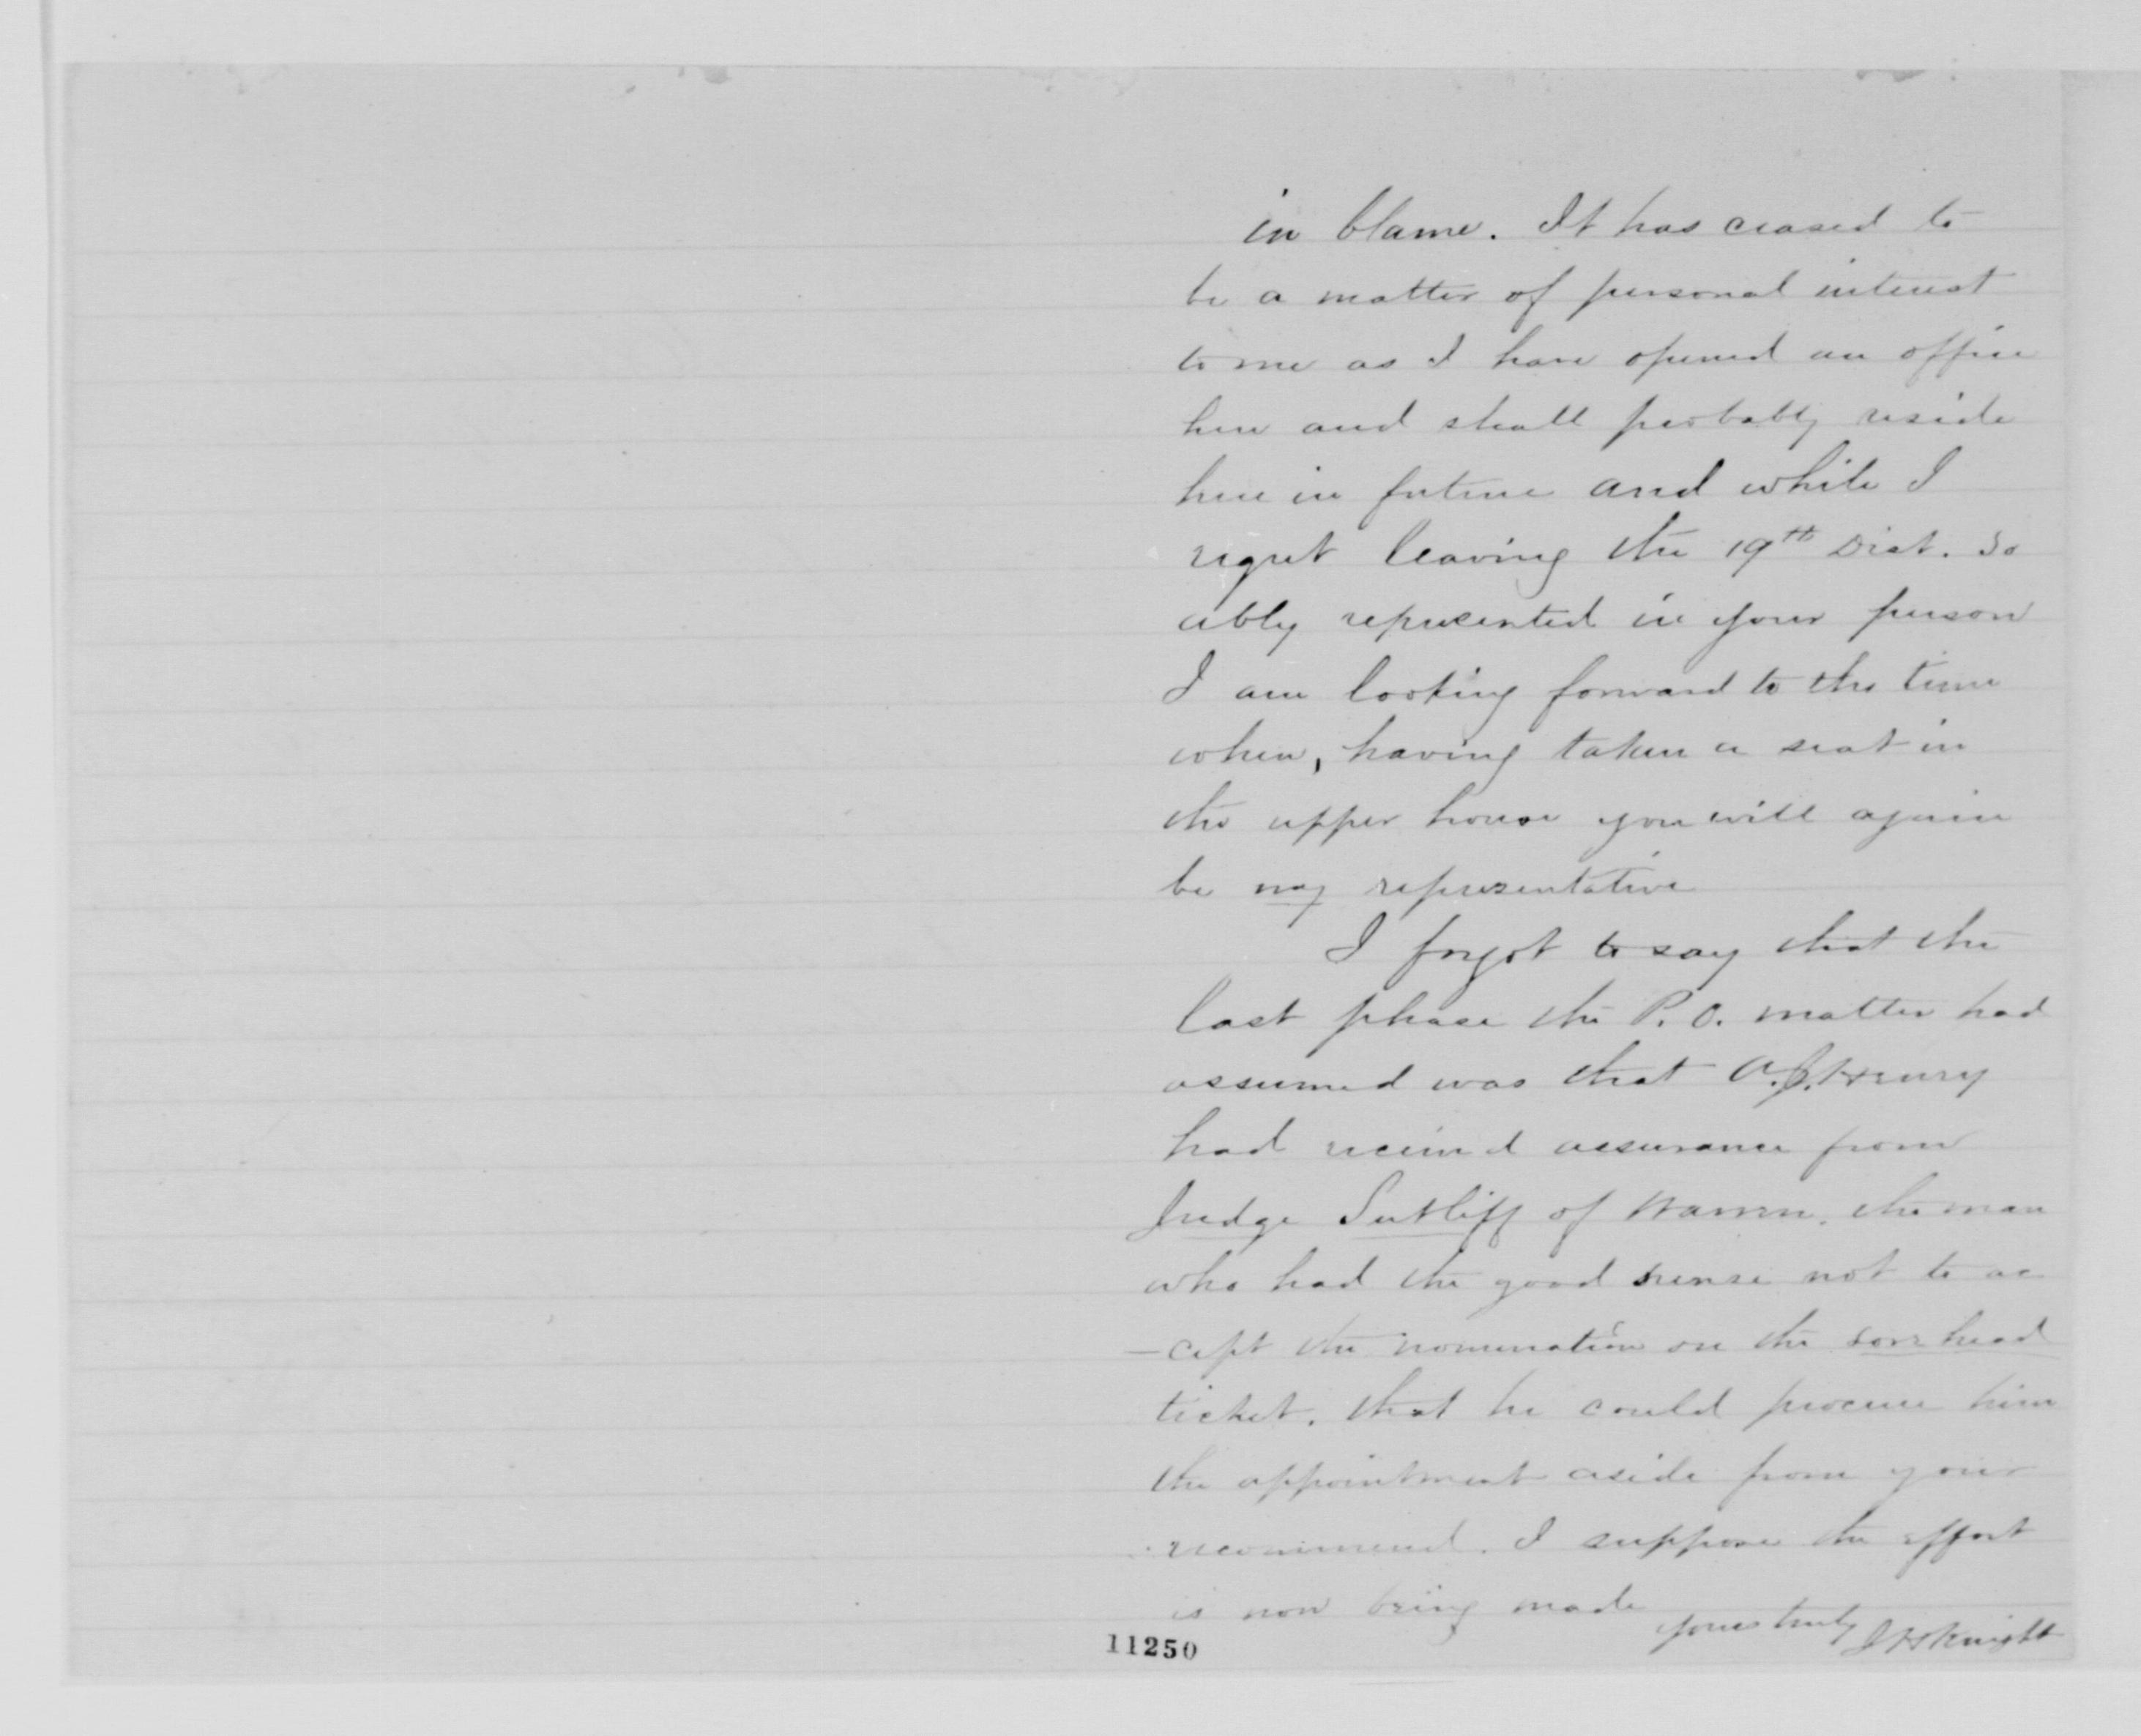 in blame. It has ceased to
be a matter of personal interest
to me as I have opened an office
here and shall probably reside
here in future and while I
regret leaving the 19th Dist. so
ably represented in your person
I am looking forward to the time
when, having taken a seat in
the upper house you will again
be my representative
I forgot to say that the
last phase the P.O. matter had
assumed was that A.J. Henry
had received assurance from
Judge Sutliff of Warren, the man
who had the good sense not to ac
-cept the nomination on the sorehead
ticket, that he could procure him
the appointment aside from your
recommend. I suppose the effort
is now being made
yours truly J H Knight
11250